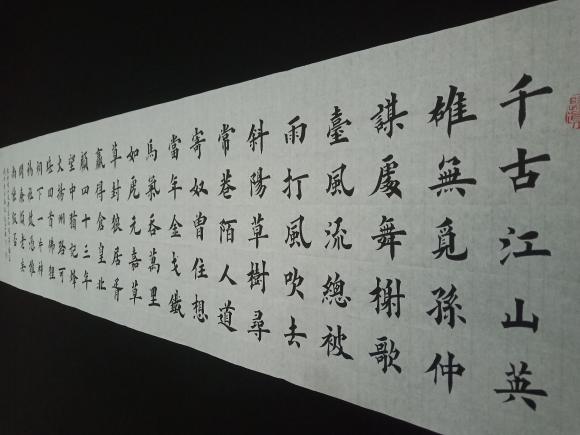 千古江山英
雄無覓孫仲
謀處舞榭歌
臺風流總被
雨打風吹去
斜陽草樹尋
常巷陌人道
寄奴曾住想
當年金戈鐵
馬氣吞萬里
如虎元嘉草
草封狼居胥
贏得倉皇北
顧四十三年
望中猶記烽
火揚州路可
堪回首佛狸
祠下一片神
鴉社鼓憑誰
問廉頗老矣
尚能飯否